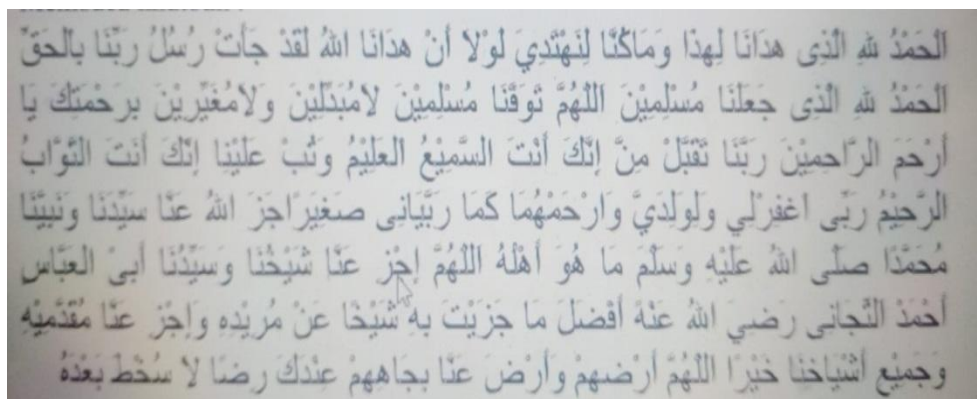 اَلْحَمْدُ لِلهِ الَّذِى هدَانَا لِهذَا وَمَاكُنَّا لِنَهْتَدِيَ لَوْلَا أَنْ هدَانَا اللهُ لَقَدْ جَأَتْ رُسُلُ رَبِّنَا بِالْحَقِّ
اَلْحَمْدُ لِلهِ الَّذِى جَعَلَنَا مُسْلِمِيْنَ اَللهُمَّ تَوَفَّنَا مُسْلِمِيْنَ لَامُبَدِّلِيْنَ وَلَامُغَيِّرِيْنَ بِرَحْمَتِكَ يَا
أَرْحَمَ الرَّاحِمِيْنَ رَبَّنَا تَقَبَّلْ مِنَّ إِنَّكَ أَنْتَ السَّمِيْعُ الْعَلِيْمُ وَتُبْ عَلَيْنَا إِنَّكَ أَنْتَ التَّوَّابُ
الرَّحِيْمُ رَبِّى اغْفِرْلِي وَلِوَلِدَيَّ وَارْحَمْهُمَا كَمَا رَبَّيَانِى صَغِيْرًاجَزَ اللهُ عَنَّا سَيِّدَنَا وَنَبِيَّنَا
مُحَمَّدًا صَلَّى اللهُ عَلَيْهِ وَسَلَّمَ مَا هُوَ أَهْلُهُ اَللهُمَّ اِجْزِ عَنَّا شَيْخُنَا وَسَيِّدُنَا أَبِىْ الْعَبَّاس
أَحْمَدْ التِّجَانِى رَضِيَ اللهُ عَنْهُ أَفْضَلَ مَا جَزَيْتَ بِهِ شَيْخًا عَنْ مُرِيْدِهِ وَاِجْزِ عَنَّا مُقَدَّمِيْهِ
وَجَمِيْعِ أَشْيَاخِنَا خَيْرًا اَللهُمَّ أَرْضِهِمْ وَأَرْضَ عَنَّا بِجَاهِهِمْ عِنْدَكَ رِضًا لَا سُخْطَ بَعْدَهُ